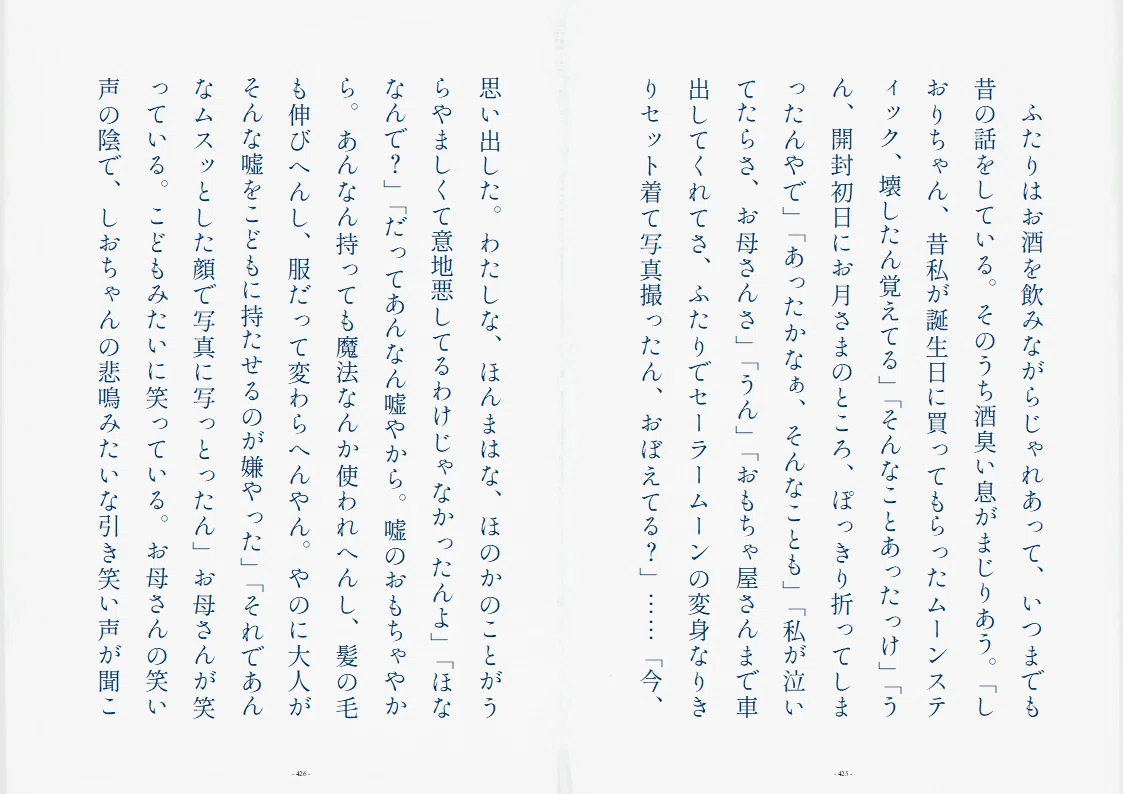 ふたりはお酒を飲みながらじゃれあって、いつまでも
昔の話をしている。そのうち酒臭い息がまじりあう。「し
おりちゃん、昔私が誕生日に買ってもらったムーンステ
ィック、壊したん覚えてる」「そんなことあったっけ」「う
ん、開封初日にお月さまのところ、ぽっきり折ってしま
ったんやで」「あったかなぁ、そんなことも」「私が泣い
てたらさ、お母さんさ」「うん」「おもちゃ屋さんまで車
出してくれてさ、ふたりでセーラームーンの変身なりき
りセット着て写真撮ったん、おぼえてる？」……「今、
- 425 -
思い出した。わたしな、ほんまはな、ほのかのことがう
らやましくて意地悪してるわけじゃなかったんよ」「ほな
なんで？」「だってあんなん嘘やから。嘘のおもちゃやか
ら。あんなん持っても魔法なんか使われへんし、髪の毛
も伸びへんし、服だって変わらへんやん。やのに大人が
そんな嘘をこどもに持たせるのが嫌やった」「それであん
なムスッとした顔で写真に写っとったん」お母さんが笑
っている。こどもみたいに笑っている。お母さんの笑い
声の陰で、しおちゃんの悲鳴みたいな引き笑い声が聞こ
- 426 -